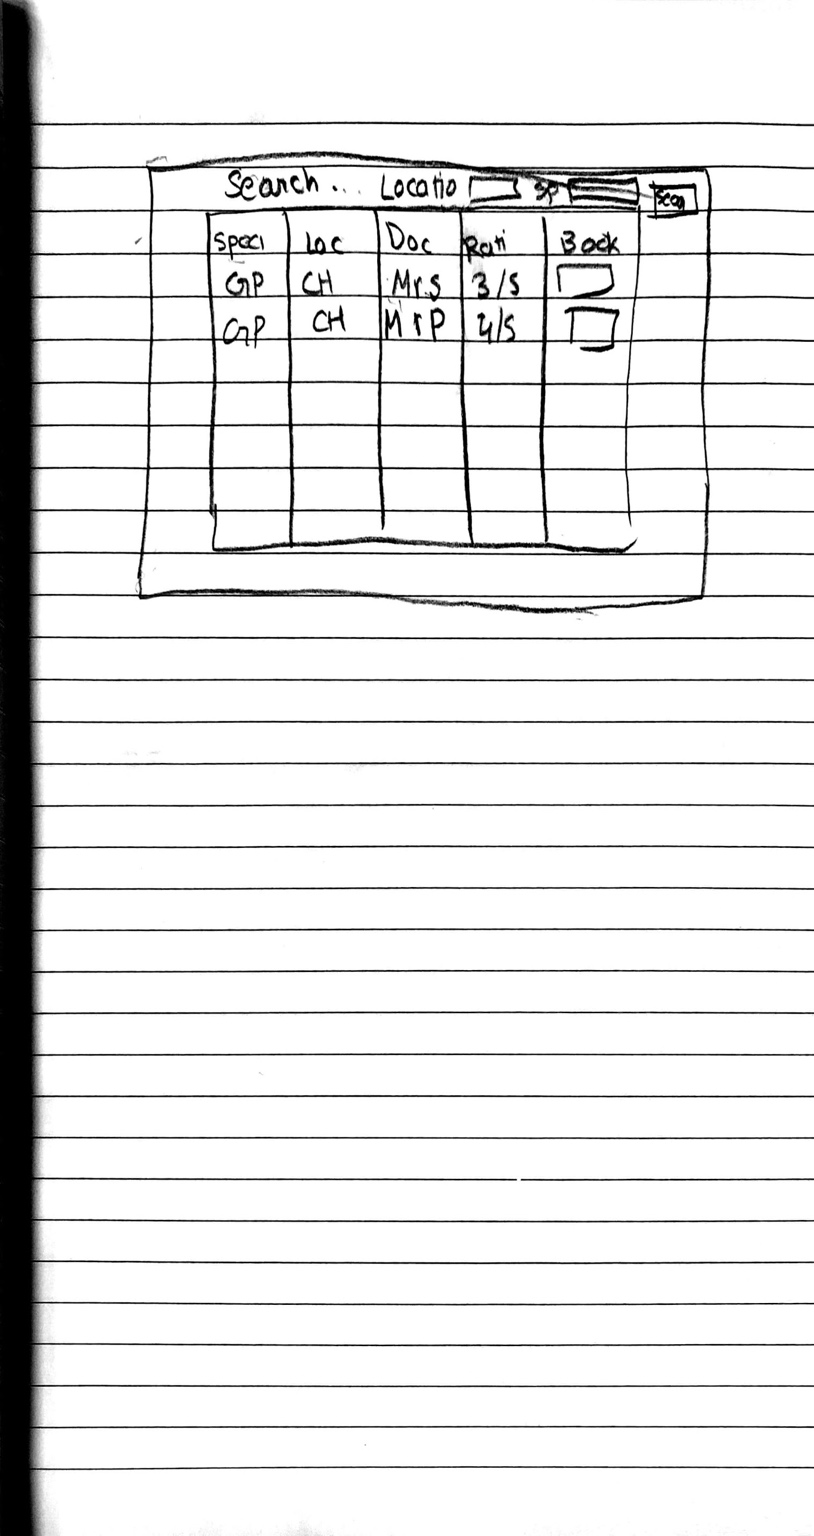 Search... Locatio Sp Sear
Speci Loc Doc Rati Book
GP CH Mr.S 3/5
GP CH Mr P 4/5